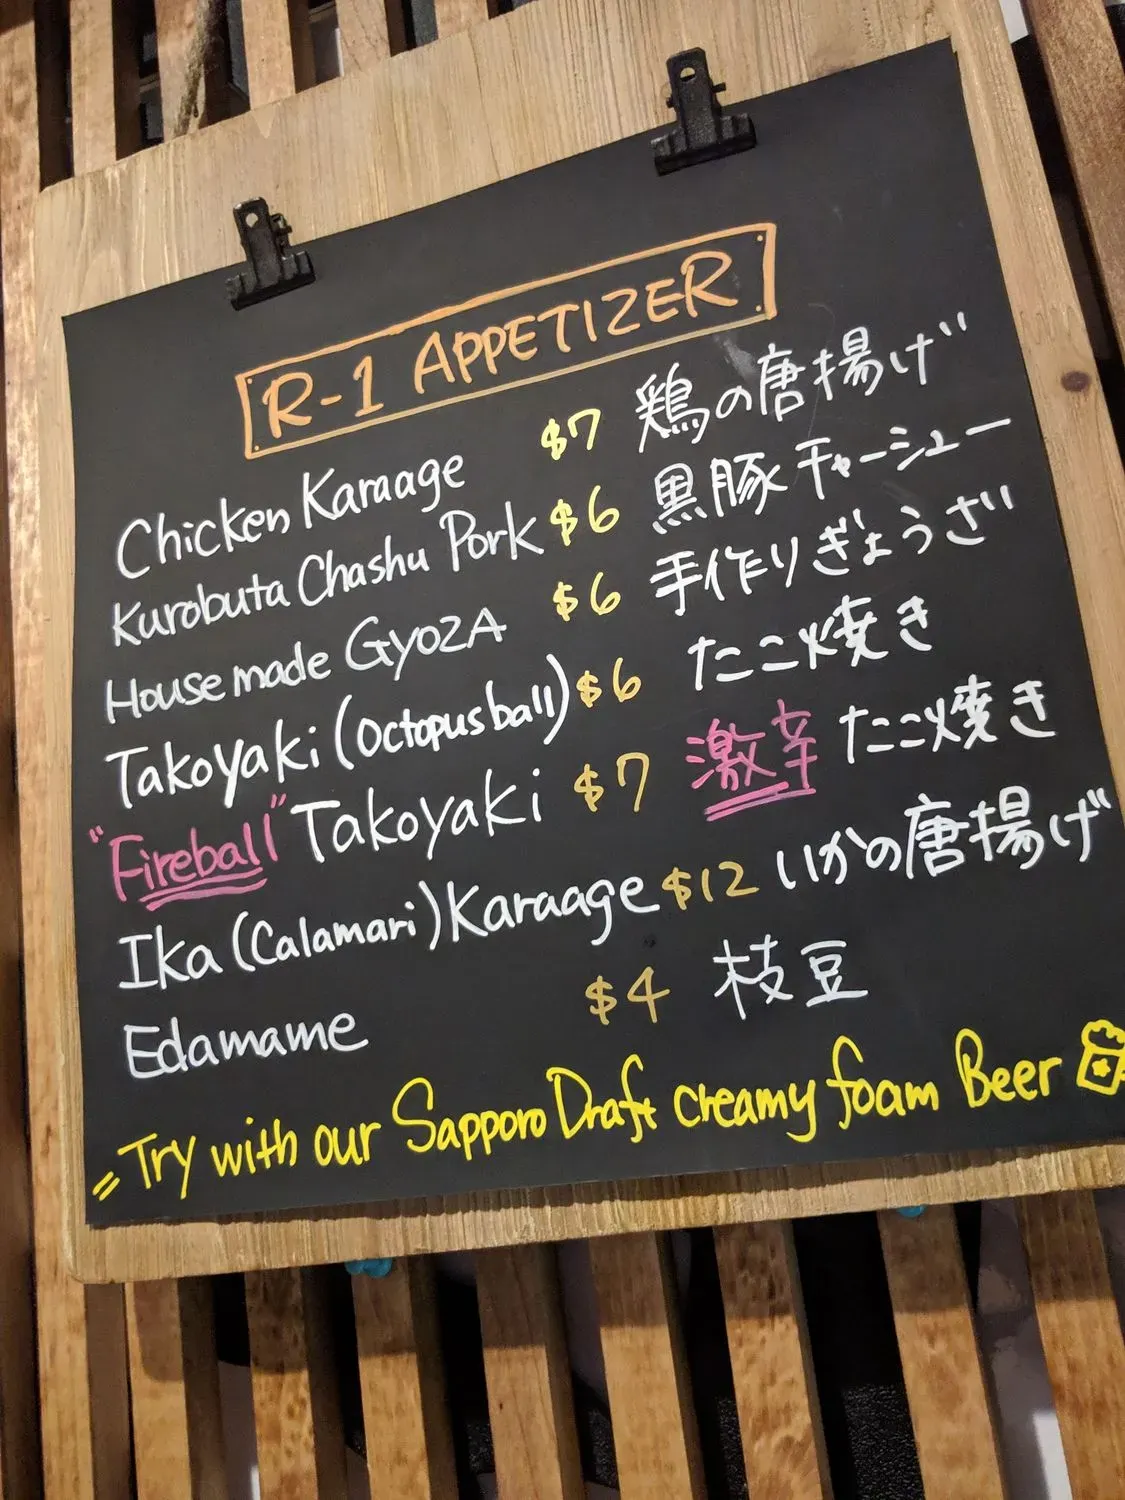 R-1 APPETIZER
Chicken Karaage $7 鶏の唐揚げ
Kurobuta Chashu Pork $6 黒豚チャーシュー
House made Gyoza $6 手作りぎょうざ
Takoyaki (Octopus ball) $6 たこ焼き
"Fireball" Takoyaki $7 激辛たこ焼き
Ika (Calamari) Karaage $12 いかの唐揚げ
Edamame $4 枝豆
Try with our Sapporo Draft creamy foam Beer